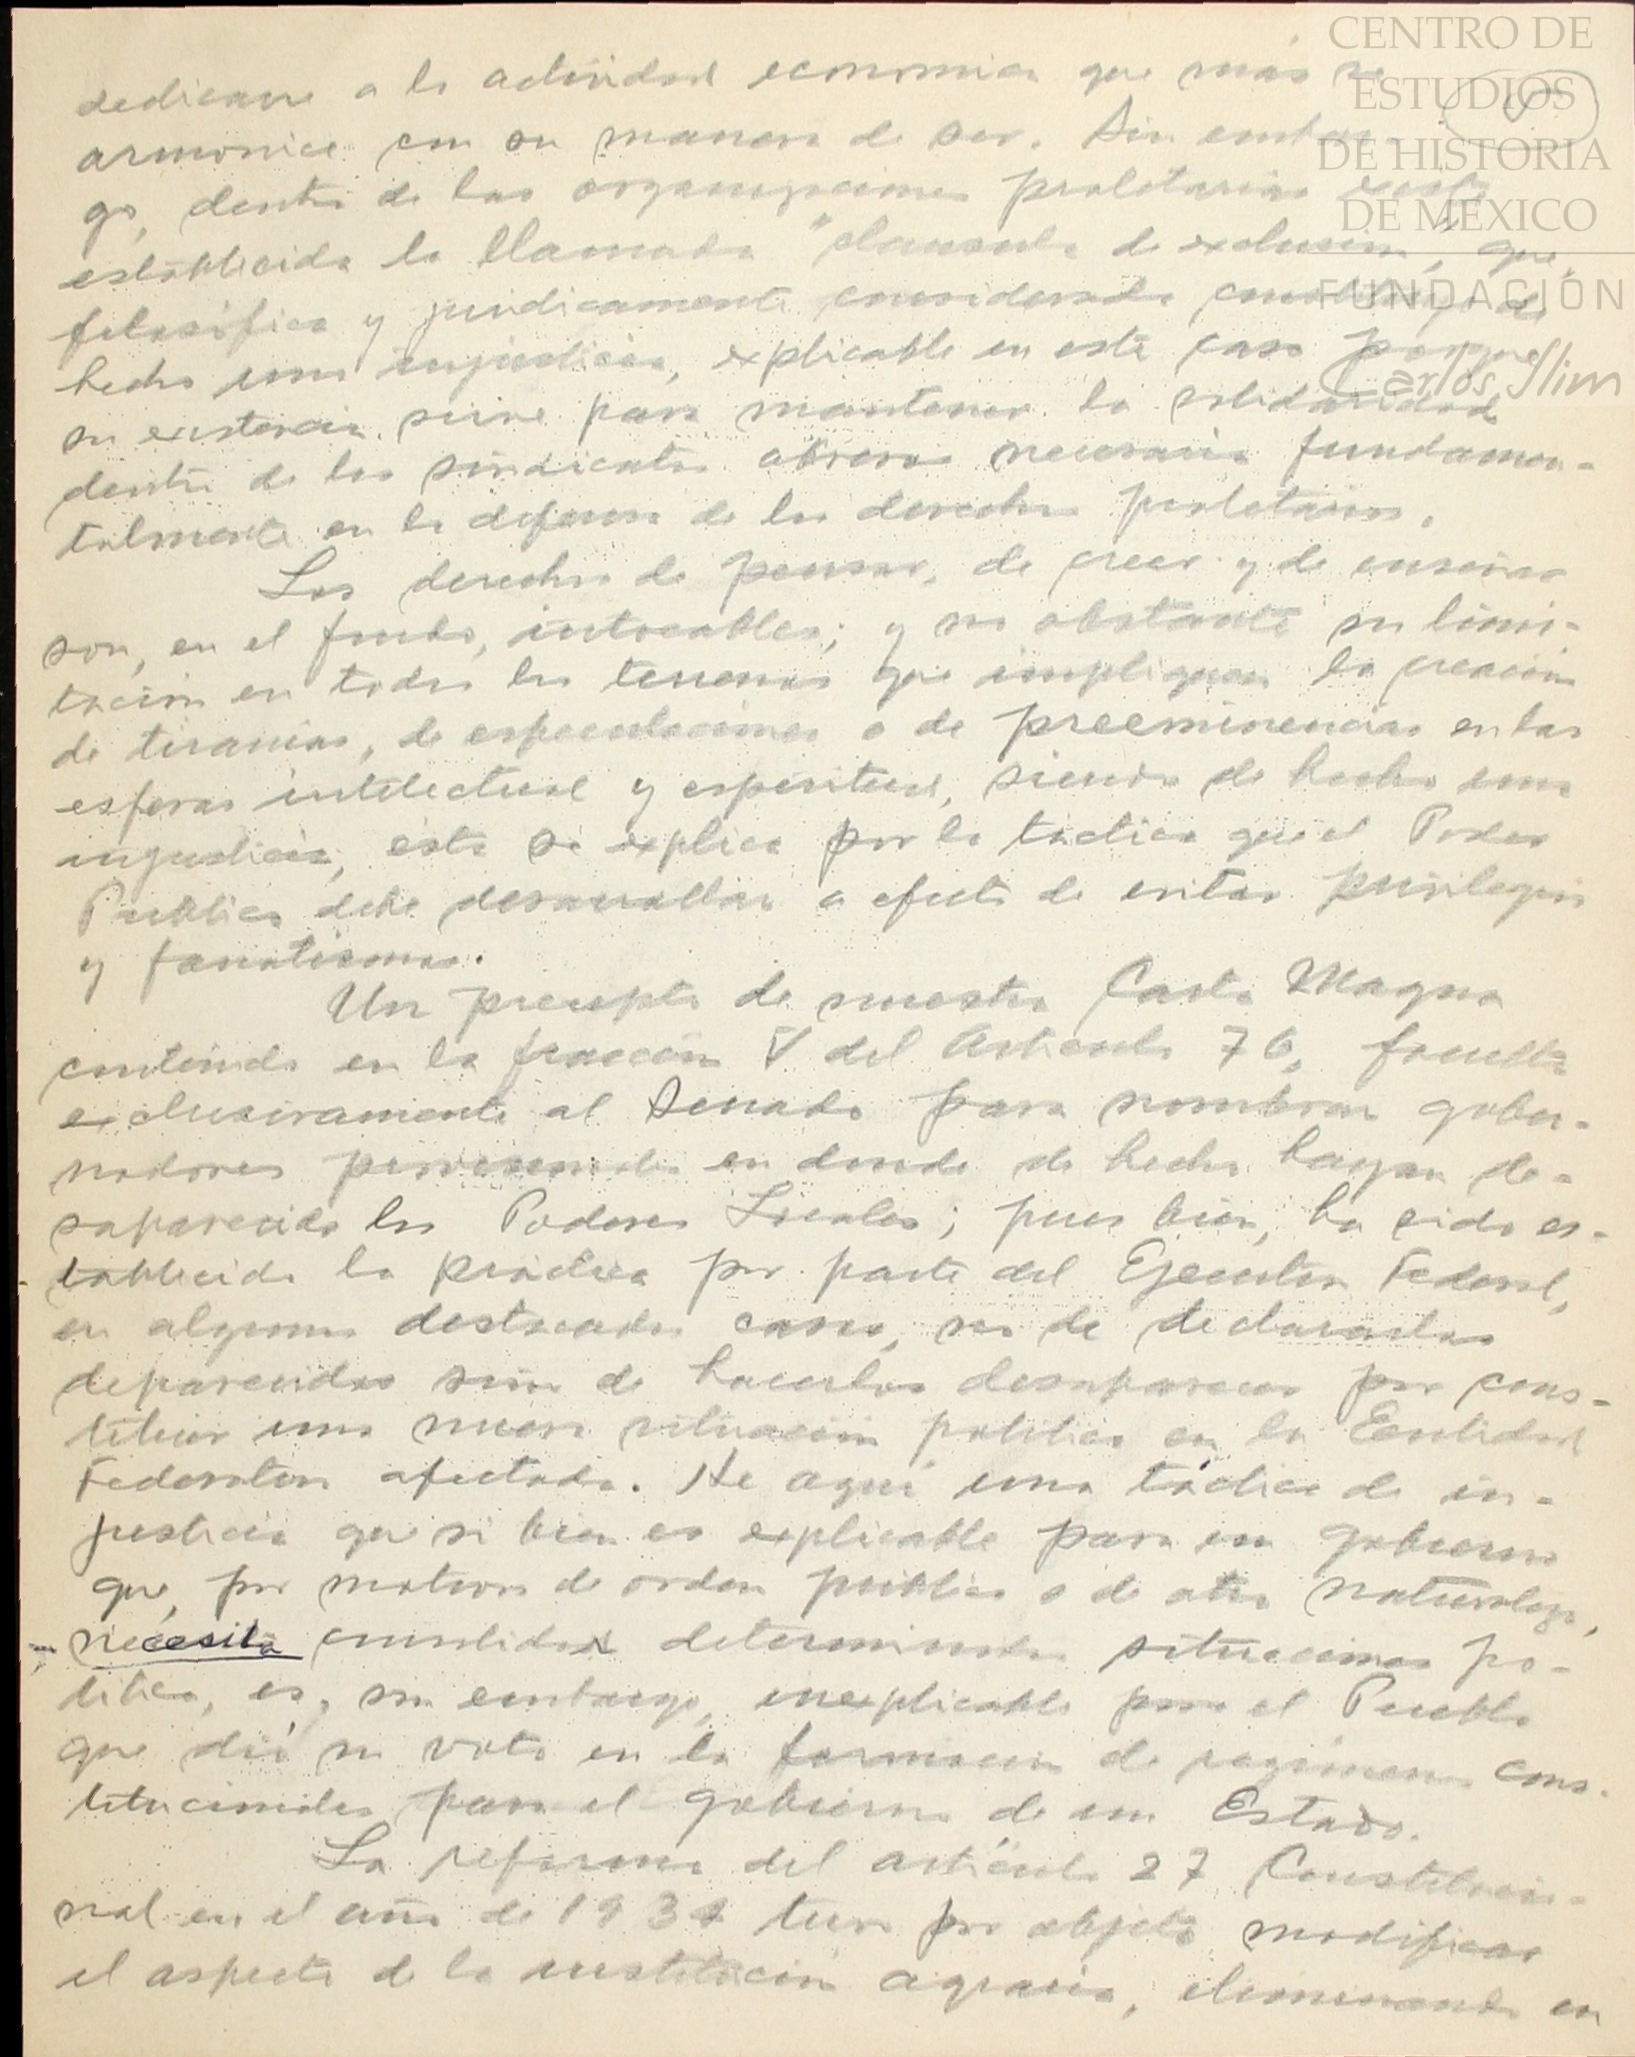 CENTRO DE
ESTUDIOS
DE HISTORIA
DE MÉXICO
FUNDACIÓN
Carlos Slim
dedicarse a la actividad economica que más se
armonice con su manera de ser. Sin embar-
go, dentro de las organizaciones proletarias está
establecida la llamada "clausula de exclusion", que,
filosófica y juridicamente considerada constituye de
hecho una injusticia, explicable en este caso porque
su existencia sirve para mantener la solidaridad
dentro de los sindicatos obreros necesaria fundamen-
talmente en la defensa de los derechos proletarios.
Los derechos de pensar, de creer y de enseñar
son, en el fondo, intocables; y no obstante su limi-
tación en todos los terrenos que impliquen la creación
de tiranias, de especulaciones o de preeminencias en las
esferas intelectual y espiritual, siendo de hecho una
injusticia, ésta se explica por la táctica que el Poder
Publico debe desarrollar a efecto de evitar privilegios
y fanatismos.
Un precepto de nuestra Carta Magna
contenido en la fracción V del Articulo 76, faculta
exclusivamente al Senado para nombrar gober-
nadores provisionales en donde de hecho hayan de-
saparecido los Poderes Locales; pues bien, ha sido es-
tablecida la práctica por parte del Ejecutivo Federal,
en algunos destacados casos, no de declararlos
deparecidos sino de hacerlos desaparecer por cons-
tituir una nueva situación politica en la Entidad
Federativa afectada. He aquí una táctica de in-
justicia que si bien es explicable para un gobierno
que, por motivos de orden público o de otra naturaleza,
necesita consolidar determinadas situaciones po-
liticas, es, sin embargo, inexplicable para el Pueblo
que dió su voto en la formacion de regimenes cons-
titucionales para el gobierno de un Estado.
La reforma del articulo 27 Constitucio-
nal en el año de 1934 tuvo por objeto modificar
el aspecto de la institución agraria, eliminando en